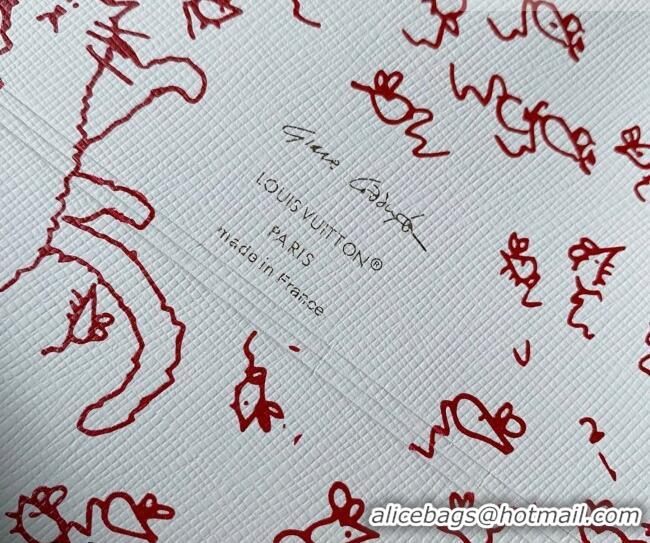 Grace Coddington
LOUIS VUITTON®
PARIS
made in France
alicebags@hotmail.com